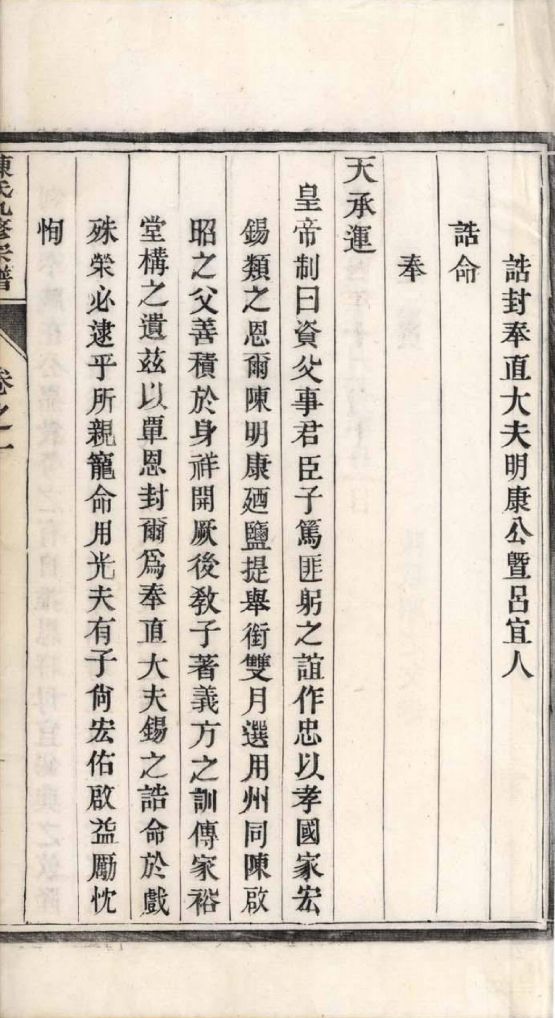 誥封奉直大夫明康公曁呂宜人
誥命
奉
天承運
皇帝制曰資父事君臣子篤匪躬之誼作忠以孝國家宏
錫類之恩爾陳明康廼鹽提舉銜雙月選用州同陳啟
昭之父善積於身祥開厥後敎子著義方之訓傳家裕
堂構之遺兹以覃恩封爾爲奉直大夫錫之誥命於戲
殊榮必逮乎所親寵命用光夫有子尙宏佑啟益勵忱
恂
陳氏九修宗譜
卷之一